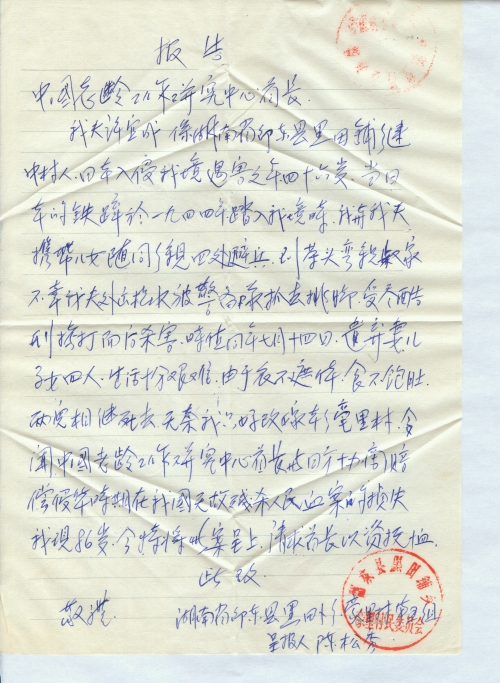 报告
中国老龄工作研究中心首长.
我夫许宜成 係湖南省邵东县黑田铺继
中村人.日军入侵我境遇害之年四十六岁.当日
军的铁蹄於一九四四年踏入我境时,我和我夫
携带儿女随同乡亲四处避兵.到茶头弯家
不幸我夫外出被警备队抓去挑脚.受尽酷
刑拷打而后杀害.时值同年七月十四日.遗弃妻儿
子女四人.生活十分艰难.由于衣不遮体,食不饱肚.
两儿相继死去无奈我只好改嫁本乡毫里村.今
闻中国老龄工作研究中心首长与日方协商赔
偿侵华时期在我国无故残杀人民血案的损失
我现86岁.今特将此案呈上,请求首长以资抚恤.
此致
敬礼
湖南省邵东县黑田乡毫里村第组
呈报人 陈松秀
黑田铺乡
村民委员会